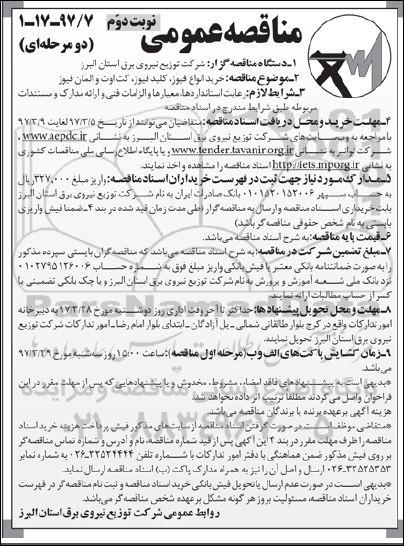 نوبت دوّم
مناقصه عمومی ۱-۱۷-۹۷/۷
(دو مرحله‌ای)
۱-دستگاه مناقصه گزار: شرکت توزیع نیروی برق استان البرز
۲-موضوع مناقصه: خرید انواع فیوز، کلید فیوز، کت اوت و المان فیوز
۳-شرایط لازم: رعایت استانداردها، معیارها و الزامات فنی و ارائه مدارک و مستندات
مربوطه طبق شرایط مندرج در اسناد مناقصه
۴-مهلت خرید و محل دریافت اسناد مناقصه: متقاضیان می‌توانند از تاریخ ۹۷/۳/۵ لغایت ۹۷/۳/۹
با مراجعه به وب‌سایت‌های شرکت توزیع نیروی برق استان البرز به نشانی www.aepdc.ir ,
شرکت توانیر به نشانی www.tender.tavanir.org.ir و یا پایگاه اطلاع‌رسانی ملی مناقصات کشوری
به نشانی http://iets.mporg.ir اسناد مناقصه را مشاهده و اخذ نمایند.
۵-مدارک مورد نیاز جهت ثبت در فهرست خریداران اسناد مناقصه: واریز مبلغ ۳۲۷,۰۰۰ ریال
به حساب سپهر ۰۱۰۱۵۲۰۱۵۲۰۰۶ بانک صادرات ایران به نام شرکت توزیع نیروی برق استان البرز
بابت خریداری اسناد مناقصه و ارسال به مناقصه گزار (طی مدت زمان قید شده در بند ۴-ضمنا فیش واریزی
بایستی به نام شخص حقوقی مناقصه گر باشد)
۶-قیمت پایه مناقصه: به شرح اسناد مناقصه می‌باشد.
۷-مبلغ تضمین شرکت در مناقصه: به شرح اسناد مناقصه می‌باشد که مناقصه گران بایستی سپرده مذکور
را به صورت ضمانتنامه بانکی معتبر یا فیش بانکی واریز مبلغ فوق به شماره حساب ۰۱۰۲۷۹۵۱۲۶۰۰۶
نزد بانک ملی شعبه آموزش و پرورش به نام شرکت توزیع نیروی برق استان البرز و یا چک بانکی تضمینی یا
کسر از حساب مطالبات ارائه نمایند.
۸-مهلت و محل تحویل پیشنهادها: حداکثر تا آخر وقت اداری روز دوشنبه مورخ ۹۷/۳/۲۸ به دبیرخانه
امور تدارکات واقع در کرج بلوار طالقانی شمالی- پل آزادگان- ابتدای بلوار امام رضا-امور تدارکات شرکت توزیع
نیروی برق استان البرز تحویل نمایند.
۹-زمان گشایش پاکت‌های الف و ب (مرحله اول مناقصه): ساعت ۱۵:۰۰ روز سه شنبه مورخ ۹۷/۳/۲۹
می‌باشد.
-بدیهی است به پیشنهادهای فاقد امضاء، مشروط، مخدوش و یا پیشنهادهایی که پس از مهلت مقرر در این
فراخوان واصل می‌گردند مطلقا ترتیب اثر داده نخواهد شد.
هزینه آگهی بر عهده برنده یا برندگان مناقصه می‌باشد.
-متقاضی موظف است در صورت گرفتن اسناد مناقصه از سایت‌های مذکور فیش پرداخت هزینه خرید اسناد
مناقصه را ظرف مهلت مقرر در بند ۴ این آگهی پس از قید شماره مناقصه، نام و آدرس و شماره تماس مناقصه گر
بر روی فیش مذکور ضمن هماهنگی با دفتر امور تدارکات با شماره تلفن ۰۲۶-۳۲۵۲۴۴۴۴ به شماره نمابر
۰۲۶-۳۲۵۲۵۳۵۳ ارسال و اصل آن را نیز به همراه مدارک پاکت (ب) اسناد مناقصه ارسال نماید.
-بدیهی است در صورت عدم ارسال یا تحویل فیش بانکی خرید اسناد مناقصه و ثبت نام مناقصه گر در فهرست
خریداران اسناد مناقصه، مسئولیت بروز هر گونه مشکل بر عهده شخص مناقصه گر می‌باشد.
روابط عمومی شرکت توزیع نیروی برق استان البرز